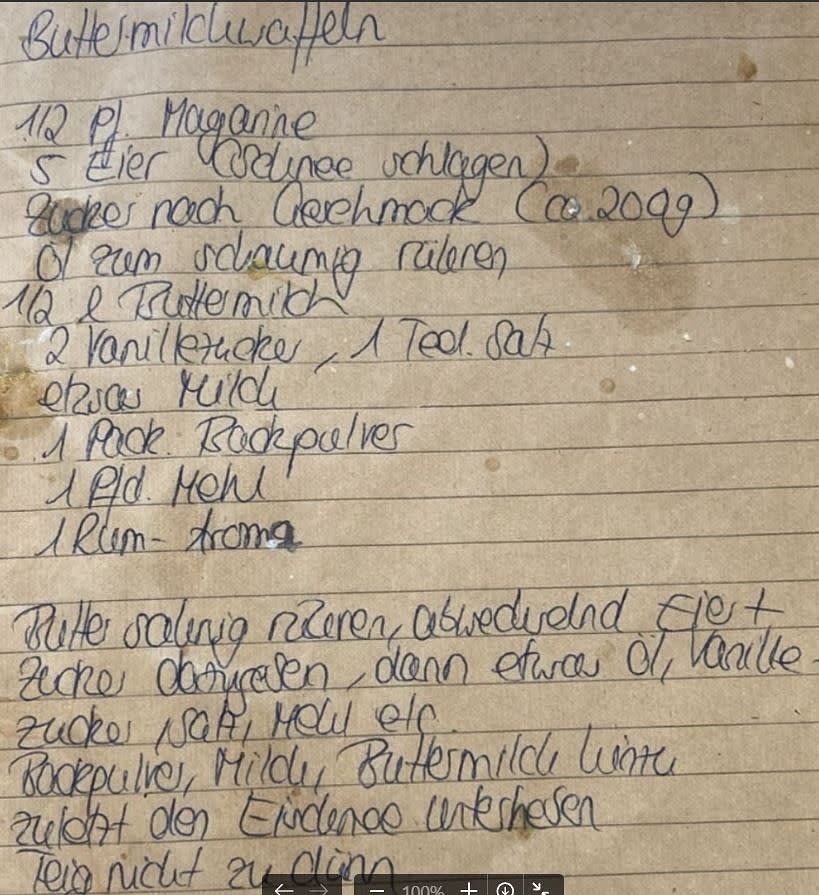 Buttermilchwaffeln
1/2 Pf. Maganine
5 Eier (Schnee schlagen)
Zucker nach Geschmack (ca. 200g)
Öl zum schaumig rühren
1/2 l Buttermilch
2 Vanillezucker, 1 Teel. Salz
etwas Milch
1 Pack. Backpulver
1 Pfd. Mehl
1 Rum-Aroma
Butter sahnig rühren, abwechselnd Eier +
Zucker dazugeben, dann etwas Öl, Vanille-
zucker, Salz, Mehl etc.
Backpulver, Milch, Buttermilch hinzu
zuletzt den Eischnee unterheben
Teig nicht zu dünn
100%